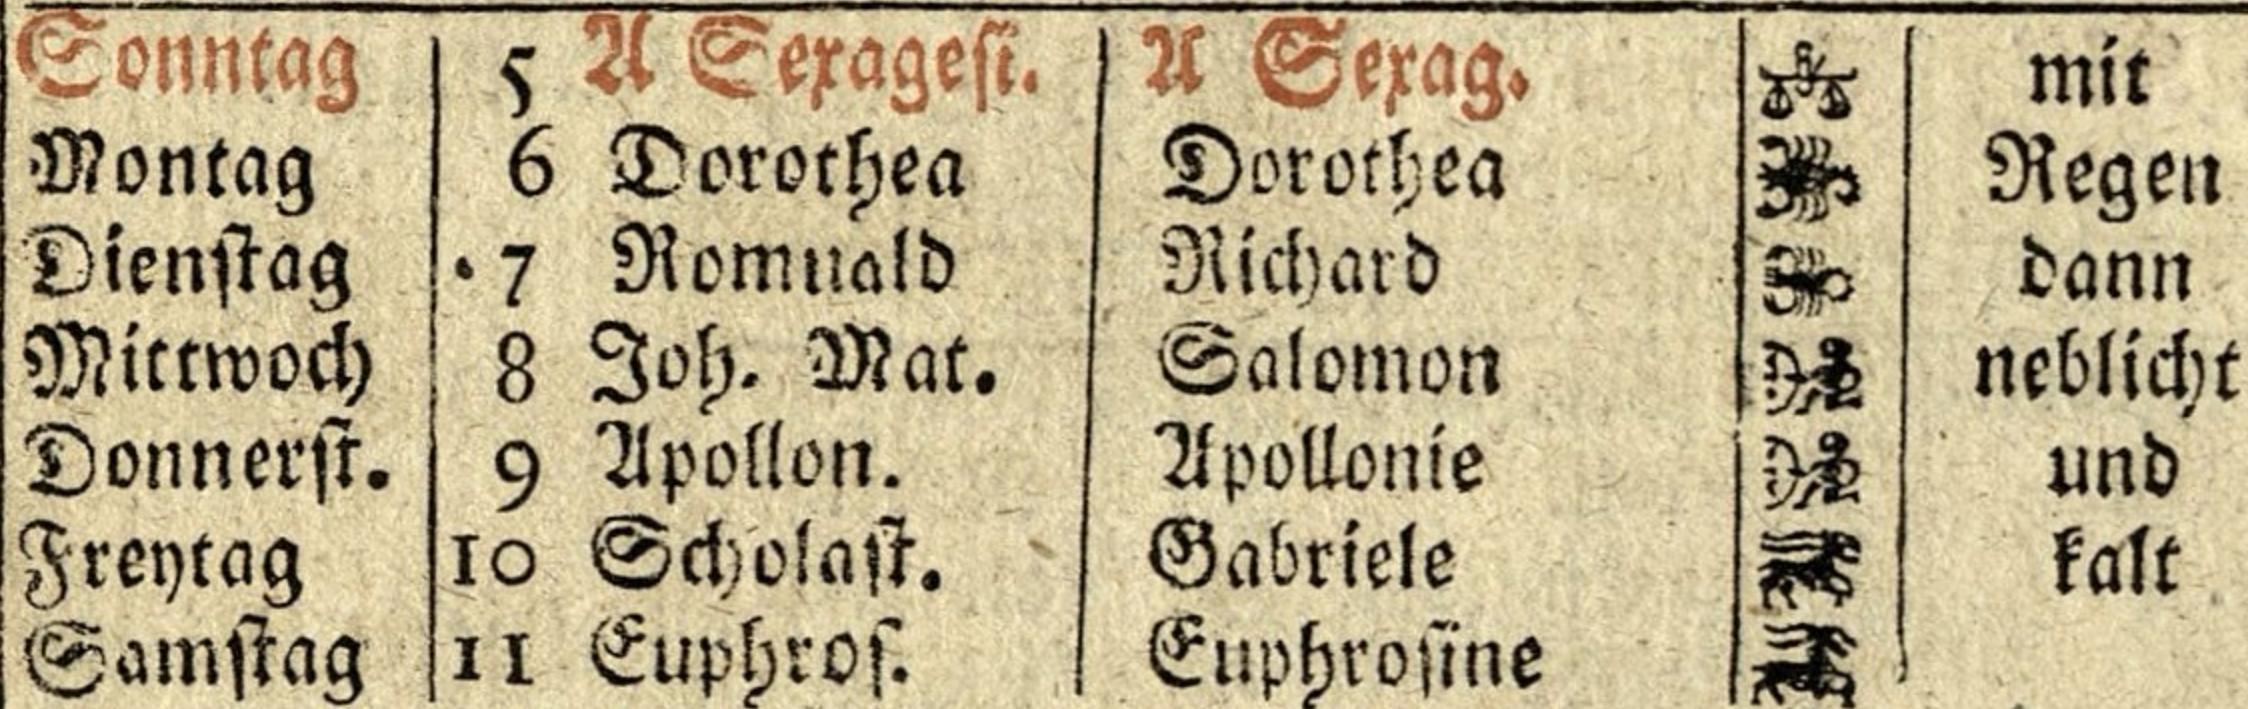 Sonntag 5 A Sexagesi. A Sexag. mit
Montag 6 Dorothea Dorothea Regen
Dienstag 7 Romuald Richard dann
Mittwoch 8 Joh. Mat. Salomon neblicht
Donnerst. 9 Apollon. Apollonie und
Freytag 10 Scholast. Gabriele kalt
Samstag 11 Euphros. Euphrosine